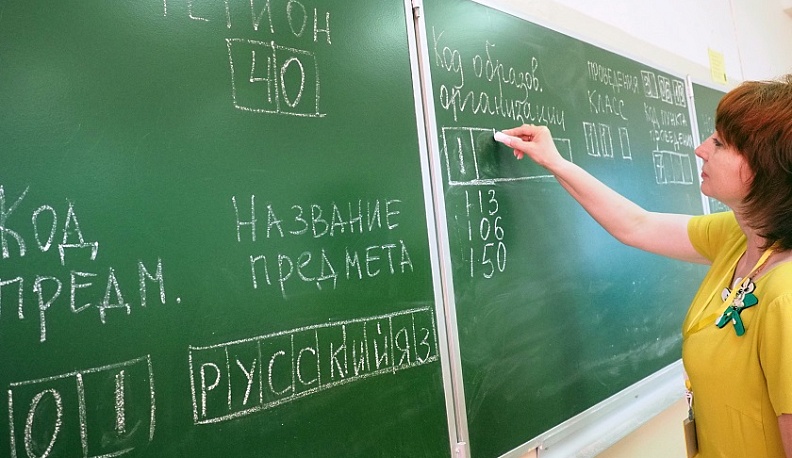 РЕГИОН
40
Код
предм.
01
НАЗВАНИЕ
предмета
РУССКИЙ ЯЗ
Код образов.
организации
1
113
106
150
ПРОВЕДЕНИЯ
КЛАСС
11
Код пункта
проведения
7